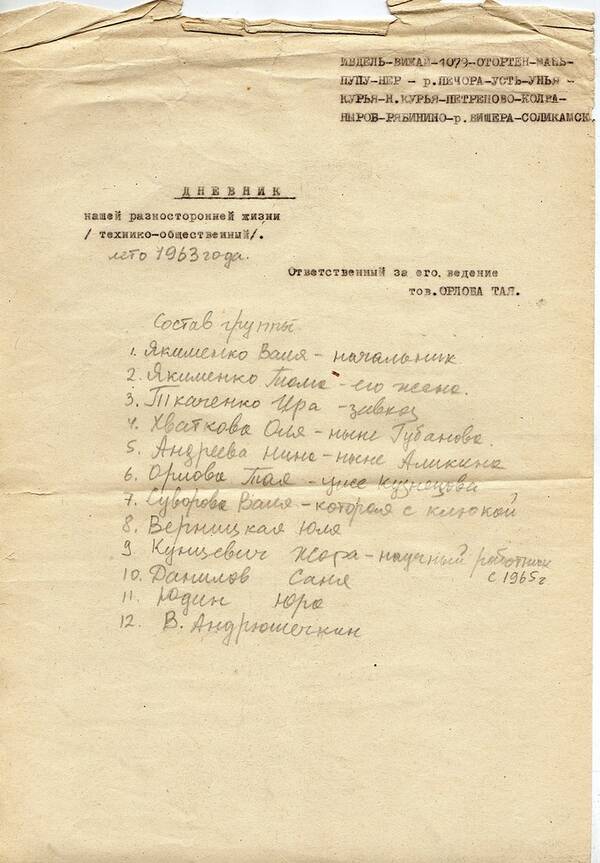 ИВДЕЛЬ-ВИЖАЙ-1079-ОТОРТЕН-МАНЬ-
ПУПУ-НЕР - р.ПЕЧОРА-УСТЬ-УНЬЯ -
КУРЬЯ-Н.КУРЬЯ-ПЕТРЕЦОВО-КОЛВА-
НЫРОБ-РЯБИНИНО-р.ВИШЕРА-СОЛИКАМСК
ДНЕВНИК
нашей разносторонней жизни
/технико-общественный/.
лето 1963 года.
Ответственный за его ведение
тов.ОРЛОВА ТАЯ.
Состав группы
1. Якименко Валя - начальник
2. Якименко Тома - его жена.
3. Ткаченко Ира - завхоз
4. Хваткова Оля - ныне Губанова.
5. Андреева Нина - ныне Аликина
6. Орлова Тая - уже Кузнецова
7. Суворова Валя - которая с клюкой
8. Верницкая Юля
9. Кунцевич Жора - научный работник
с 1965г
10. Данилов Саня
11. Юдин Юра
12. В. Андрюшечкин